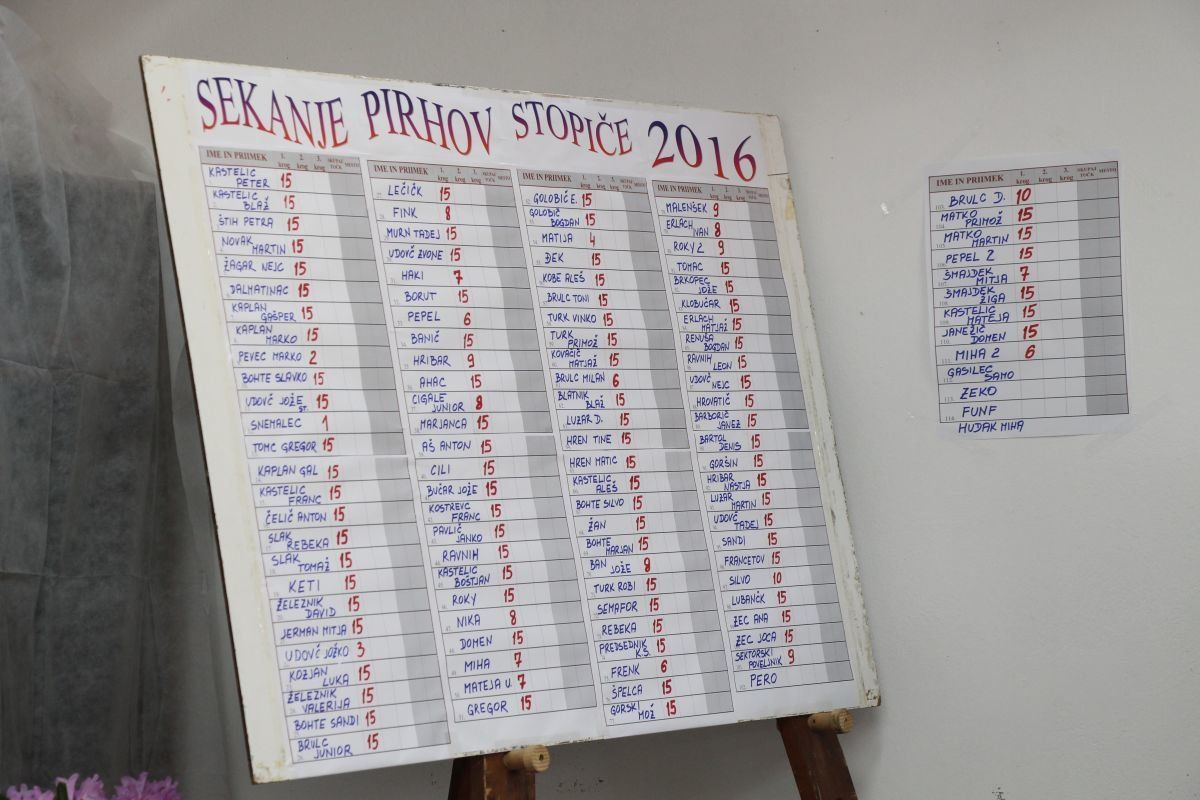 SEKANJE PIRHOV STOPIČE 2016
IME IN PRIIMEK 1. krog 2. krog 3. krog SKUPAJ TOČK MESTO
KASTELIC PETER 15
KASTELIC BLAŽ 15
ŠTIH PETRA 15
NOVAK MARTIN 15
ŽAGAR NEJC 15
DALMATINAC 15
KAPLAN GAŠPER 15
KAPLAN MARKO 15
PEVEC MARKO 2
BOHTE SLAVKO 15
UDOVČ JOŽE ST. 15
SNEMALEC 1
TOMC GREGOR 15
KAPLAN GAL 15
KASTELIC FRANC 15
ČELIČ ANTON 15
SLAK REBEKA 15
SLAK TOMAŽ 15
KETI 15
ŽELEZNIK DAVID 15
JERMAN MITJA 15
UDOVČ JOŽKO 3
KOZJAN LUKA 15
ŽELEZNIK VALERIJA 15
BOHTE SANDI 15
BRULC JUNIOR 15
IME IN PRIIMEK 1. krog 2. krog 3. krog SKUPAJ TOČK MESTO
LEČIČK 15
FINK 8
MURN TADEJ 15
UDOVČ ZVONE 15
HAKI 7
BORUT 15
PEPEL 6
BANIČ 15
HRIBAR 9
AHAC 15
CIGALE JUNIOR 8
MARJANCA 15
AŠ ANTON 15
CILI 15
BUČAR JOŽE 15
KOSTREVC FRANC 15
PAVLIČ JANKO 15
RAVNIH 15
KASTELIC BOŠTJAN 15
ROKY 15
NIKA 8
DOMEN 15
MIHA 7
MATEJA U. 7
GREGOR 15
IME IN PRIIMEK 1. krog 2. krog 3. krog SKUPAJ TOČK MESTO
GOLOBIČ E. 15
GOLOBIČ BOGDAN 15
MATIJA 4
ĐEK 15
KOBE ALEŠ 15
BRULC TONI 15
TURK VINKO 15
TURK PRIMOŽ 15
KOVAČIČ MATJAŽ 15
BRULC MILAN 6
BLATNIK BLAŽ 15
LUZAR D. 15
HREN TINE 15
HREN MATIC 15
KASTELIC ALEŠ 15
BOHTE SILVO 15
ŽAN 15
BOHTE MARJAN 15
BAN JOŽE 8
TURK ROBI 15
SEMAFOR 15
REBEKA 15
PREDSEDNIK K.S. 15
FRENK 6
ŠPELCA 15
GORSKI MOŽ 15
IME IN PRIIMEK 1. krog 2. krog 3. krog SKUPAJ TOČK MESTO
MALENŠEK 9
ERLACH IVAN 8
ROKY 2 9
TOMAC 15
BRKOPEC JOŽE 15
KLOBUČAR 15
ERLACH MATJAŽ 15
RENUŠA BOGDAN 15
RAVNIH LEON 15
UDOVČ NEJC 15
HROVATIČ 15
BARBORIČ JANEZ 15
BARTOL DENIS 15
GORŠIN 15
HRIBAR NASTJA 15
LUZAR MARTIN 15
UDOVČ TADEJ 15
SANDI 15
FRANCETOV 15
SILVO 10
LUBANČK 15
ZEC ANA 15
ZEC JOCA 15
SEKTORSKI POVELJNIK 9
PERO
IME IN PRIIMEK 1. krog 2. krog 3. krog SKUPAJ TOČK MESTO
BRULC D. 10
MATKO PRIMOŽ 15
MATKO MARTIN 15
PEPEL 2 15
ŠMAJDEK MITJA 7
ŠMAJDEK ŽIGA 15
KASTELIC MATEJA 15
JANEŽIČ DOMEN 15
MIHA 2 6
GASILEC SAMO
ZEKO
FUNF
HUDAK MIHA